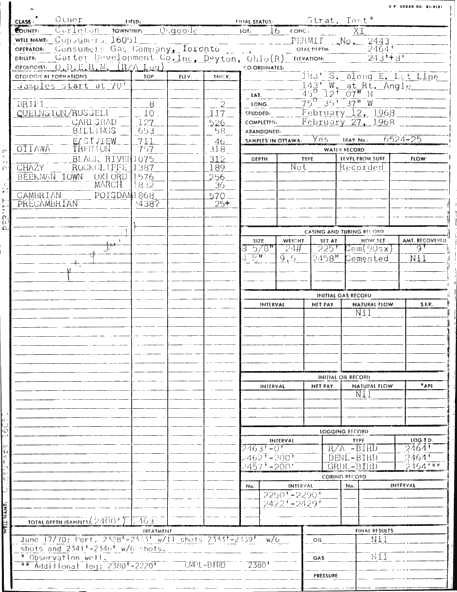 U.P. ORDER NO. 81-8181
CLASS: Other FIELD: FINAL STATUS: Strat. Test*
COUNTY: Carleton TOWNSHIP: Osgoode LOT. 16 CONC. XI
WELL NAME: Consumers 16051 PERMIT No. 2443
OPERATOR: Consumers Gas Company, Toronto TOTAL DEPTH: 2464'
DRILLER: Carter Development Co.Inc, Deyton, Ohio(R) ELEVATION: 243'+8'
GEOLOGIST: O.D.E.R.M. (R/A Log) CO-ORDINATES:
183' S. along E. Lot Line
143' W. at Rt. Angle
LAT. 45° 12' 07" N
LONG. 75° 35' 37" W
SPUDDED: February 12, 1968
COMPLETED: February 27, 1968
ABANDONED:
SAMPLES IN OTTAWA: Yes TRAY No.: 6524-25
GEOLOGICAL FORMATIONS TOP ELEV. THICK.
Samples start at 70'
DRIFT 8 2
QUEENSTON/RUSSELL 10 117
CARLSBAD 127 526
BILLINGS 653 58
EASTVIEW 711 46
OTTAWA TRENTON 757 318
BLACK RIVER 1075 312
CHAZY ROCKCLIFFE 1387 189
BEEKMAN TOWN OXFORD 1576 256
MARCH 1832 36
CAMBRIAN POTSDAM 1868 570
PRECAMBRIAN 2438? 25+
TOTAL DEPTH (SAMPLES) (2400') 2463
WATER RECORD
DEPTH TYPE LEVEL FROM SURF. FLOW
Not Recorded
CASING AND TUBING RECORD
SIZE WEIGHT SET AT HOW SET AMT. RECOVERED
8 5/8" 24# 225' Cem(90sx) 9'
4½" 9.5 2458" Cemented Nil
INITIAL GAS RECORD
INTERVAL NET PAY NATURAL FLOW S.I.P.
Nil
INITIAL OIL RECORD
INTERVAL NET PAY NATURAL FLOW °API
Nil
LOGGING RECORD
INTERVAL TYPE LOG T.D.
2463'-0' R/A -BIRD 2464'
2462'-200' DENL-BIRD 2464'
2457'-200' GRDL-BIRD 2464'**
CORING RECORD
No. INTERVAL No. INTERVAL
2250'-2290'
2422'-2429'
TREATMENT
June 17/70: Perf. w/11 shots w/6
shots and 2341'-2346' w/6 shots.
* Observation well.
** Additional log: 2380'-2220' 2380'
FINAL RESULTS
OIL Nil
GAS Nil
PRESSURE
WELL NAME: